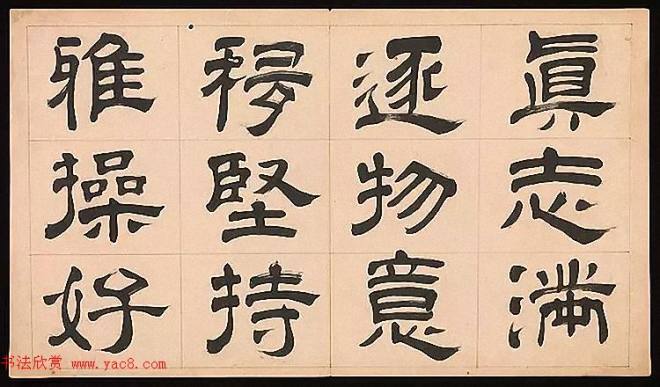 眞志滿
逐物意
移堅持
雅操好
书法欣赏 www.yac8.com